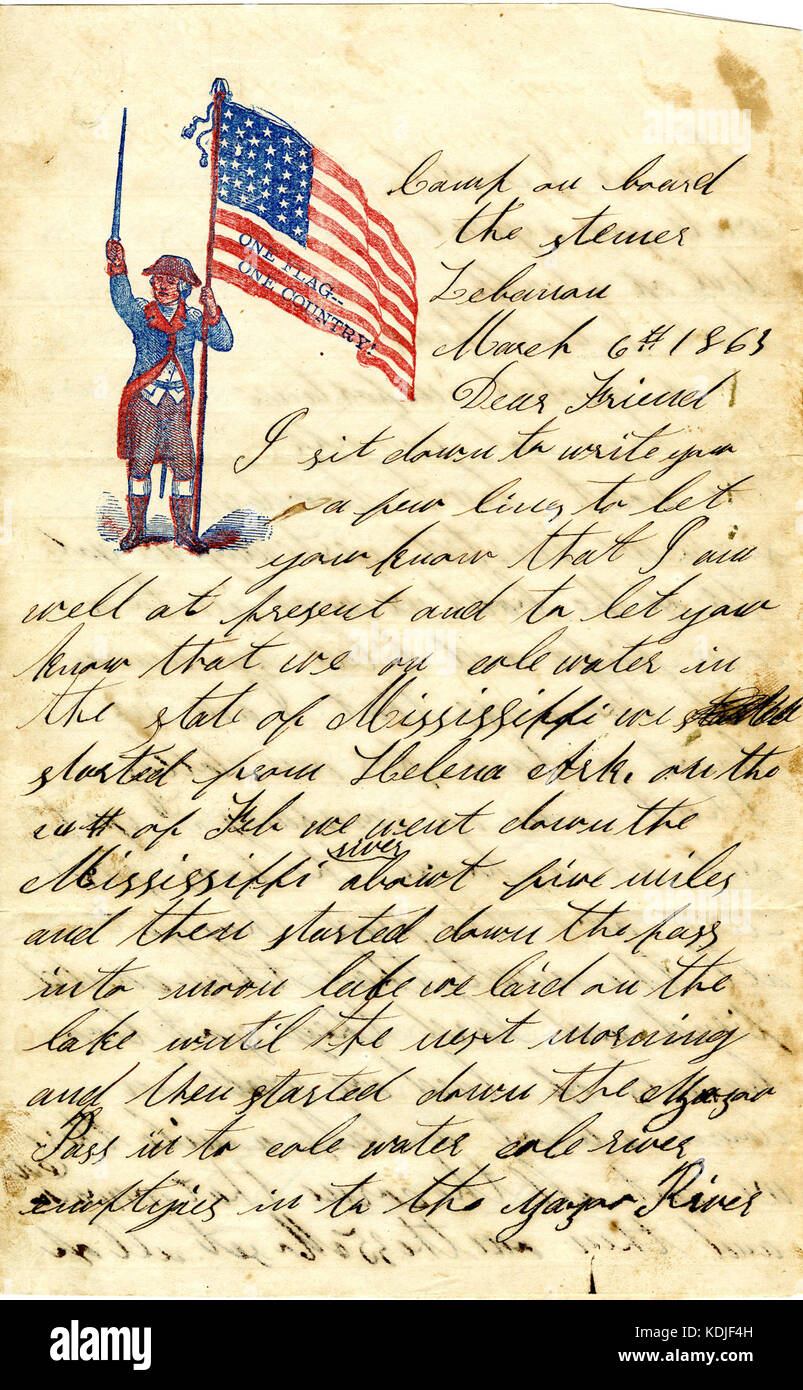 ONE FLAG--
ONE COUNTRY!
Camp on board
the stemer
Lebanon
March 6th 1863
Dear Friend
I sit down to write you
a few lines to let
you know that I am
well at present and to let you
know that we on cole water in
the state of Mississippi we
started from Helena Ark. on the
of Feb we went down the
river
Mississippi about five miles
and then started down the pass
into moon lake we laid on the
lake until the next morning
and then started down the Yazoo
Pass in to cole water cole river
emptyies in to the yazoo River
alamy
Image ID: KDJF4H
www.alamy.com